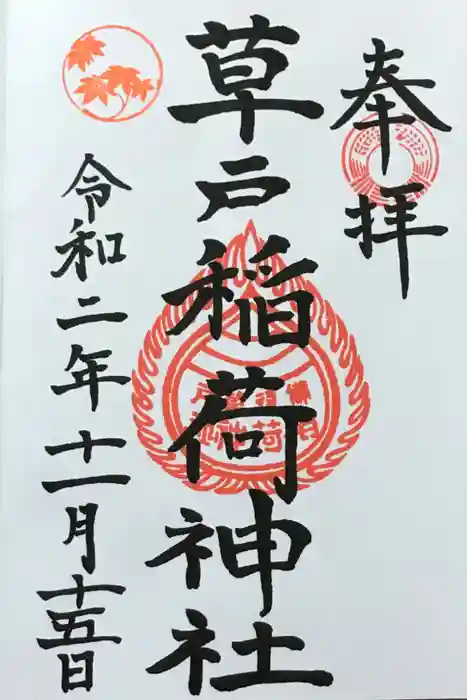 奉拝
草戸稲荷神社
令和二年十一月十五日